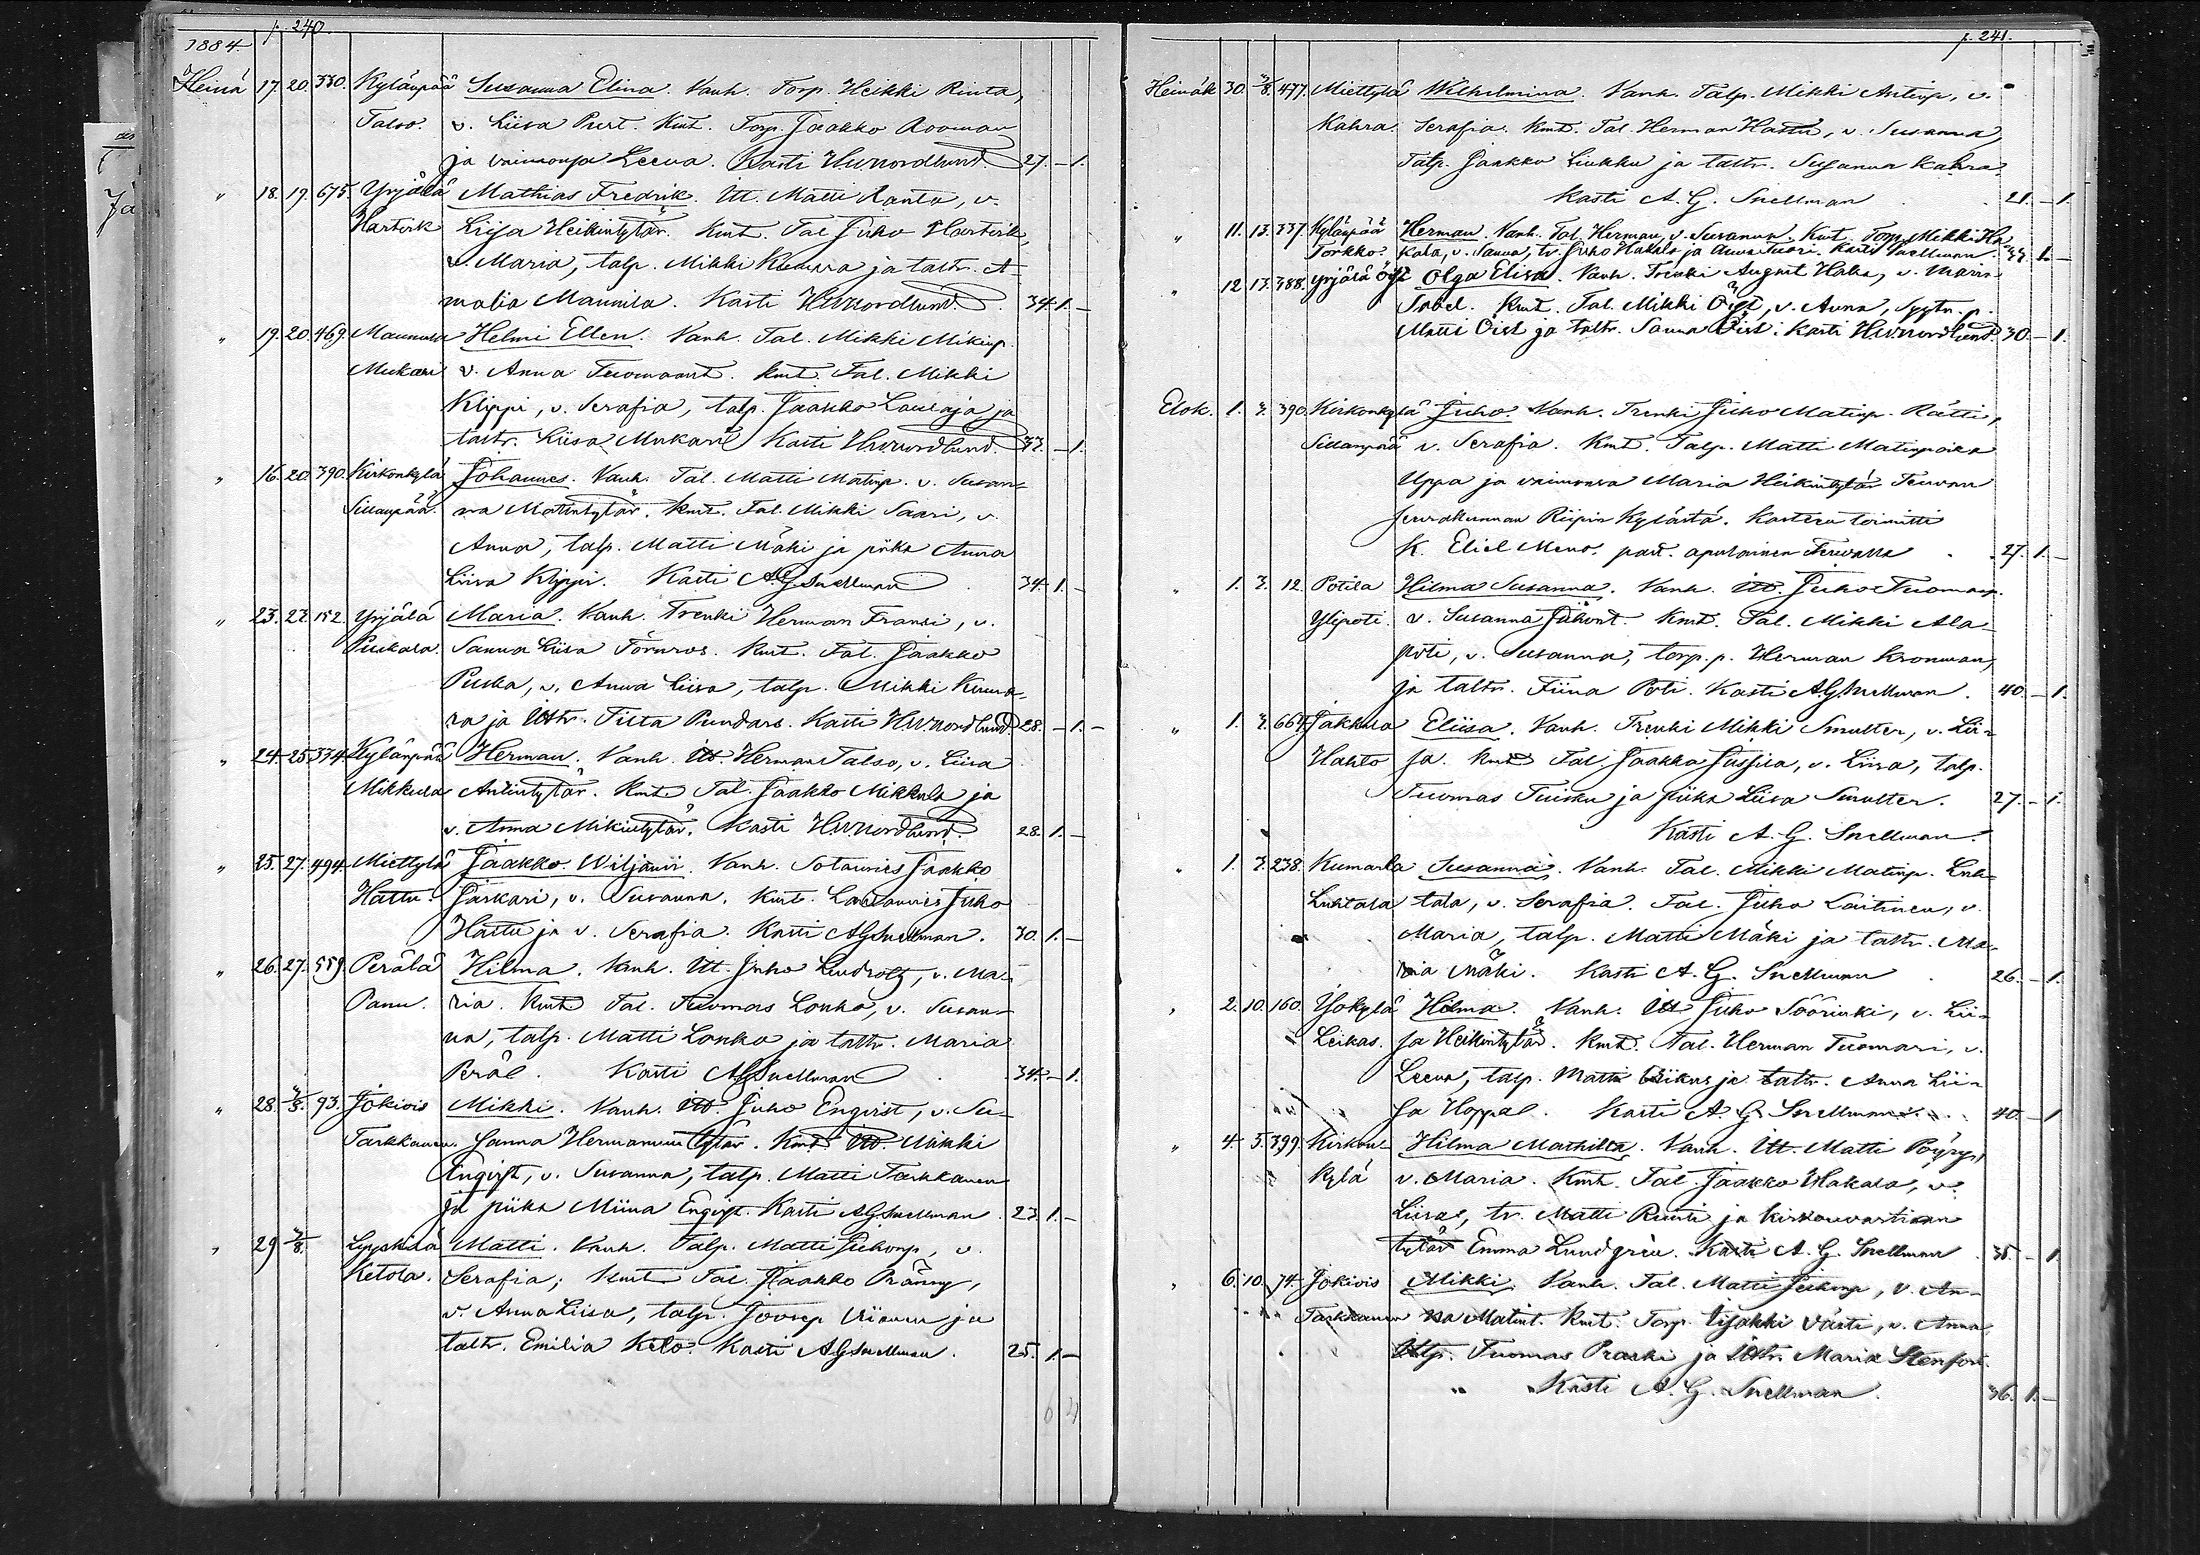 p. 240.
1884.
Heinä 17. 20. 330. Kylänpää Susanna Elina. Vanh. Torp. Heikki Rinta,
Talso. v. Liisa Purt. Kmt. Torp. Jaakko Rooman
ja vaimonsa Leena. Kasti H.W. Nordlund. 27. – 1.
" 18. 19. 675. Yrjälä Mathias Fredrik. Itt. Matti Ranta, v.
Hartvik Liisa Heikintytär. Kmt. Tal. Juho Hartvik,
v. Maria, talp. Mikki Kumara ja taltr. A-
malia Maunula. Kasti H.W. Nordlund. 34. 1. –
" 19. 20. 469. Maunula Helmi Ellen. Vanh. Tal. Mikki Mikinp.
Mukari v. Anna Tuomaant. Kmt. Tal. Mikki
Klippi, v. Serafia, talp. Jaakko Laulaja ja
taltr. Liisa Mukari Kasti H.W. Nordlund. 33. – 1.
" 16. 20. 390. Kirkonkylä Johannes. Vanh. Tal. Matti Matinp. v. Susan-
Sillanpää. na Matintytär. Kmt. Tal. Mikki Saari, v.
Anna, talp. Matti Mäki ja piika Anna
Liisa Klippi. Kasti A.G. Snellman 34. 1. –
" 23. 27. 152. Yrjälä Maria. Vanh. Trenki Herman Fransi, v.
Puskala. Sanna Liisa Törnroos. Kmt. Tal. Jaakko
Puska, v. Anna Liisa, talp. Mikki Kuma-
ra ja Ittr. Tilta Pundars. Kasti H.W. Nordlund 28. – 1. –
" 24. 25. 334. Kylänpää Herman. Vanh. Itt. Herman Talso, v. Liisa
Mikkula Antintytär. Kmt. Tal. Jaakko Mikkula ja
v. Anna Mikintytär. Kasti H.W. Nordlund. 28. 1. –
" 25. 27. 494. Miettylä Jaakko Wiljami. Vanh. Sotamies Jaakko
Hattu. Jäskäri, v. Susanna. Kmt. Lautamies Juho
Hattu ja v. Serafia. Kasti A.G. Snellman. 30. 1. –
" 26. 27. 559. Perälä Hilma. Vanh. Itt. Juho Lindroltz, v. Ma-
Panu. ria. Kmt. Tal. Tuomas Lonka, v. Susan-
na, talp. Matti Lonka ja taltr. Maria
Peräl. Kasti A.G. Snellman 34. – 1.
" 28. 3/8. 93. Jokivis Mikki. Vanh. Itt. Juho Enqvist, v. Su-
Tarkkanen. sanna Hermannintytär. Kmt. Itt. Mikki
Enqvist, v. Susanna, talp. Matti Tarkkanen
ja piika Miina Enqvist. Kasti A.G. Snellman. 23. 1. –
" 29 3/8. Lypskälä Matti. Vanh. Talp. Matti Juhonp., v.
Ketola. Serafia; Kmt. Tal. Jaakko Pränny,
v. Anna Liisa, talp. Joosep Viianen ja
taltr. Emilia Keto. Kasti A.G. Snellman. 25. 1. –
p. 241.
Heinäk 30. 3/8. 477. Miettylä Wilhelmina. Vanh. Talp. Mikki Antinp., v.
Kahra. Serafia. Kmt. Tal. Herman Hattu, v. Susanna,
Talp. Jaakko Liukku ja taltr. Susanna Kahra.
Kasti A. G. Snellman 21. – 1
" 11. 13. 337 Kylänpää Herman. Vanh. Tal. Herman, v. Susanna. Kmt. Torp. Mikki Ha-
Torkko. kala, v. Sanna, tr. Juho Hakala ja Anna Tuori. Kasti Snellman. 34. 1. –
" 12 13. 388. Yrjälä Öist Olga Elisa. Vanh. Trenki August Haka, v. Maria
Sabel. Kmt. Tal. Mikki Öist, v. Anna, Syytn. p.
Matti Öist ja taltr. Sanna Öist. Kasti H.W. Nordlund. 30. – 1.
Elok. 1. 3. 390. Kirkonkylä Juho. Vanh. Trenki Juho Matinp. Rätti,
Sillanpää v. Serafia. Kmt. Talp. Matti Matinpoika
Uppa ja vaimonsa Maria Heikintytär Teuvan
seurakunnan Riipin kylästä. Kasteen toimitti
K. Eliel Meno. past. apulainen Teuvalla 27. 1. –
" 1. 3. 12. Potila Hilma Susanna. Vanh. Itt. Juho Tuomasp.
Ylipoti. v. Susanna Juhont. Kmt. Tal. Mikki Ala-
poti, v. Susanna, torp. p. Herman Kronman,
ja taltr. Fiina Poti. Kasti A.G. Snellman. 40. – 1.
" 1. 3. 664. Jakkula Eliisa. Vanh. Trenki Mikki Smulter, v. Lii-
Hahto sa. Kmt. Tal. Jaakko Jussila, v. Liisa, talp.
Tuomas Tuisku ja piika Liisa Smulter. 27. – 1.
Kasti A. G. Snellman.
" 1. 3. 238. Kumarla Susanna. Vanh. Tal. Mikki Matinp. Luh-
Luhtala tala, v. Serafia. Tal. Juho Laitinen, v.
Maria, talp. Matti Mäki ja taltr. Ma-
ria Mäki. Kasti A. G. Snellman 26. – 1.
" 2. 10. 160. Yjokylä Hilma. Vanh. Itt. Juho Söörinki, v. Lii-
Leikas. sa Heikintytär. Kmt. Tal. Herman Tuomari, v.
Leena, talp. Matti Leikas ja taltr. Anna Lii-
sa Hoppal. Kasti A. G. Snellman. 40. – 1
" 4. 5. 399. Kirkon- Hilma Mathilta. Vanh. Itt. Matti Pöyry,
kylä v. Maria. Kmt. Tal. Jaakko Hakala, v.
Liisa, tr. Matti Runti ja kirkonvartian
tytär Emma Lundgrén. Kasti A. G. Snellman 35. – 1
" 6. 10. 74. Jokivis Mikki. Vanh. Tal. Matti Juhonp, v. An-
Tarkkanen na Matint. Kmt. Torp. Iisakki Värti, v. Anna,
Talp. Tuomas Praski ja Ittr. Maria Stenfors.
Kasti A. G. Snellman. 36. 1. –